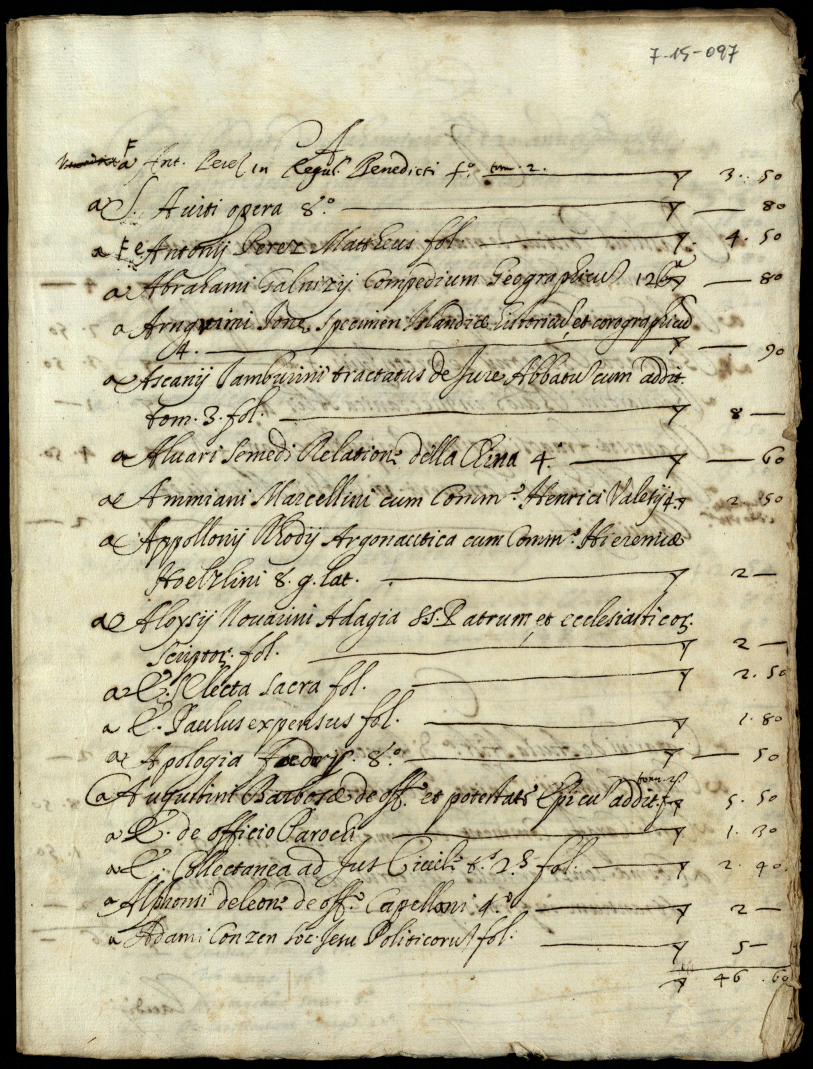 7-15-097
A
F
a Ant. Perez in Regul. Benedicti f.º tom. 2. 3. 50
a S. Auiti opera 8.º — 80
a Fe Antonij Perez Mattheus fol. 4. 50
a Abrahami Galnizij Compedium Geographicũ 126 — 80
a Arngrimi Jonæ Specimen Islandiæ historicũ, et corographicũ
4. — 90
a Ascanij Tamburini tractatus de Jure Abbatũ cum addit.
tom. 3. fol. 8 —
a Aluari Semedi Relatione della China 4. — 60
a Ammiani Marcellini cum Comm.s Henrici Valesij 4. 2. 50
a Appollonij Rhodij Argonautica cum Comm.s Hieremiæ
Hoelzlini 8. g. lat. 2 —
a Aloysij Nouarini Adagia SS. Patrum, et ecclesiasticor.
Scriptor. fol. 2 —
a E. Electa sacra fol. 2. 50
a E. Paulus expensus fol. 1. 80
a Apologia 8.º — 50
tom. 2
a Augustini Barbosæ de off.º et potestate Epicũ addit. f. 5. 50
a E. de officio Parochi 1. 30
a E. Collectanea ad Jus Ciuile t.s 2.s fol. 2. 40
a Alphonsi de leone de off.º Capellani 4.º 2 —
a Adami Conzen soc. Jesu Politicorũ fol. 5 —
46. 60